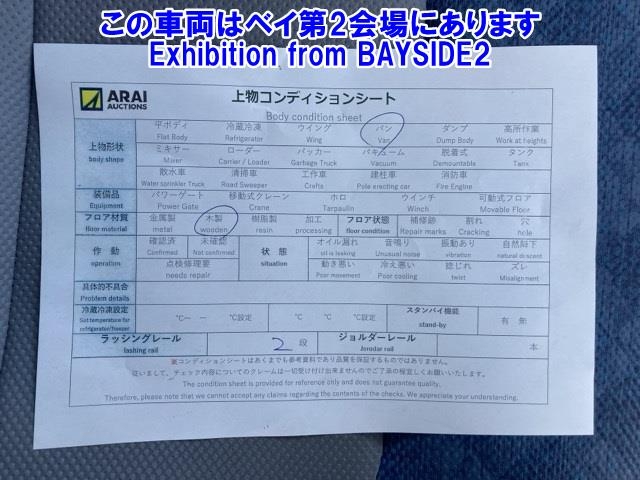 この車両はベイ第2会場にあります
Exhibition from BAYSIDE2
ARAI
AUCTIONS
上物コンディションシート
Body condition sheet
上物形状
body shape
平ボディ 冷蔵冷凍 ウイング バン ダンプ 高所作業
Flat Body Refrigerator Wing Van Dump Body Work at heights
ミキサー ローダー パッカー バキューム 脱着式 タンク
Mixer Carrier / Loader Garbage Truck Vacuum Demountable Tank
散水車 清掃車 工作車 建柱車 消防車
Water sprinkler Truck Road Sweeper Crafts Pole erecting car Fire Engine
装備品
Equipment
パワーゲート 移動式クレーン ホロ ウインチ 可動式フロア
Power Gate Crane Tarpaulin Winch Movable Floor
フロア材質 金属製 木製 樹脂製 加工 フロア状態 補修跡 割れ 穴
floor material metal wooden resin processing floor condition Repair marks Cracking hole
作動
operation
確認済 未確認
Confirmed Not confirmed
点検修理要
needs repair
状態
situation
オイル漏れ 音鳴り 振動あり 自然降下
oil is leaking Unusual noise vibration natural descent
動き悪い 冷え悪い 捻じれ ズレ
Poor movement Poor cooling twist Misalignment
具体的不具合
Problem details
冷蔵冷凍設定
Set temperature for
refrigerator/freezer
℃~ ー ℃設定 ℃設定
スタンバイ機能
stand-by
有 無
ラッシングレール 2 段 ジョルダーレール 本
lashing rail Jorudar rail
※コンディションシートはあくまでも参考資料であり品質を保証するものではありません。
従いまして、チェック内容についてのクレームは一切受け付け出来ませんのでご了承の程宜しくお願いいたします。
The condition sheet is provided for reference only and does not guarantee quality.
Therefore, please note that we cannot accept any claims regarding the contents of the checks. We appreciate your understanding.